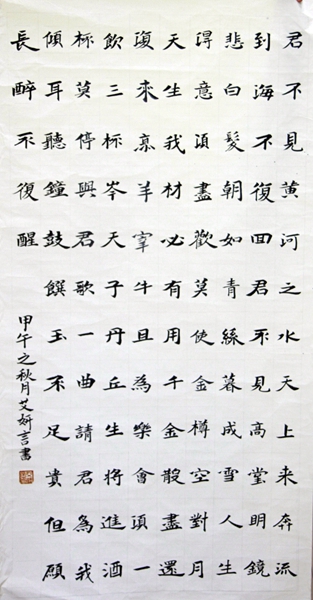 君不見黃河之水天上来奔流
到海不復回君不見高堂明鏡
悲白髮朝如青絲暮成雪人生
得意須盡歡莫使金樽空對月
天生我材必有用千金散盡還
復來烹羊宰牛且為樂會須一
飲三杯岑天子丹丘生將進酒
杯莫停與君歌一曲請君為我
傾耳聽鐘鼓饌玉不足貴但願
長醉不復醒
甲午之秋月艾妍言書